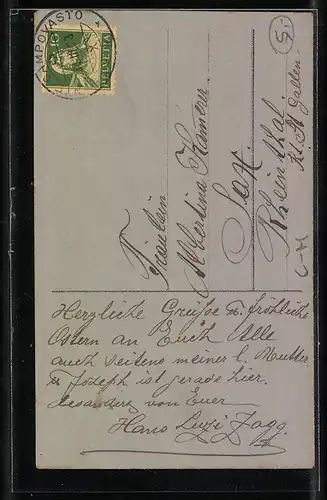 MPOVASTO
HELVETIA
Fräulein
Albertina Kamerer
Sax.
Rheinthal.
Kt. St. Gallen.
Herzliche Greisse u. fröhliche
Ostern an Euch Alle
auch seitens meiner l. Mutter
u Joseph ist gerade hier.
besonders von Euer
Hans Luzi Jagg.